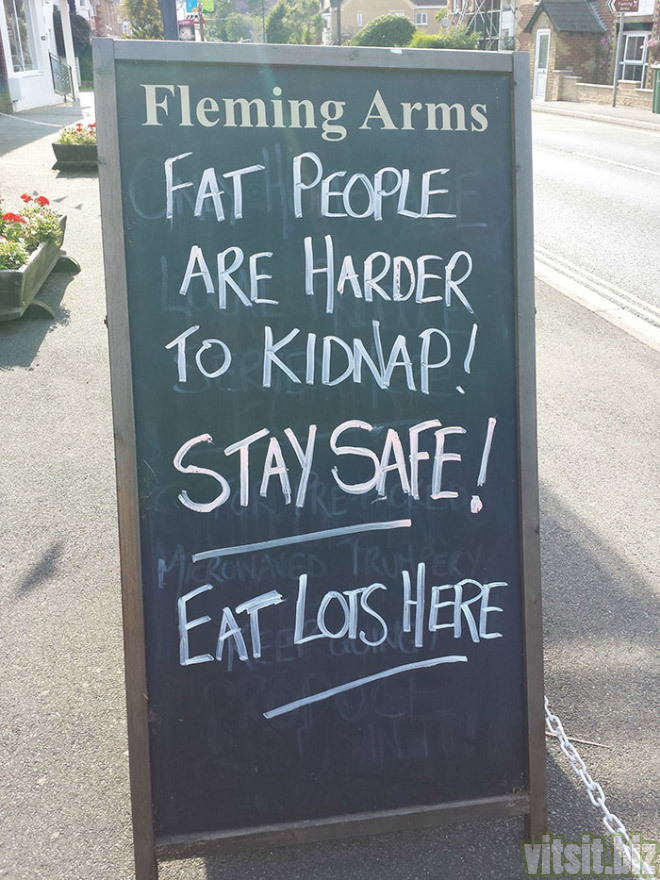 Fleming Arms
FAT PEOPLE
ARE HARDER
TO KIDNAP!
STAY SAFE!
MICROWAVED TRUMPERY
EAT LOTS HERE
vitsit.biz